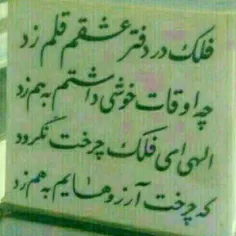 فلک در دفتر عشقم قلم زد
چه اوقات خوشی داشتم بهم زد
الهی ای فلک چرخت نگردد
که چرخت آرزوهایم به هم زد